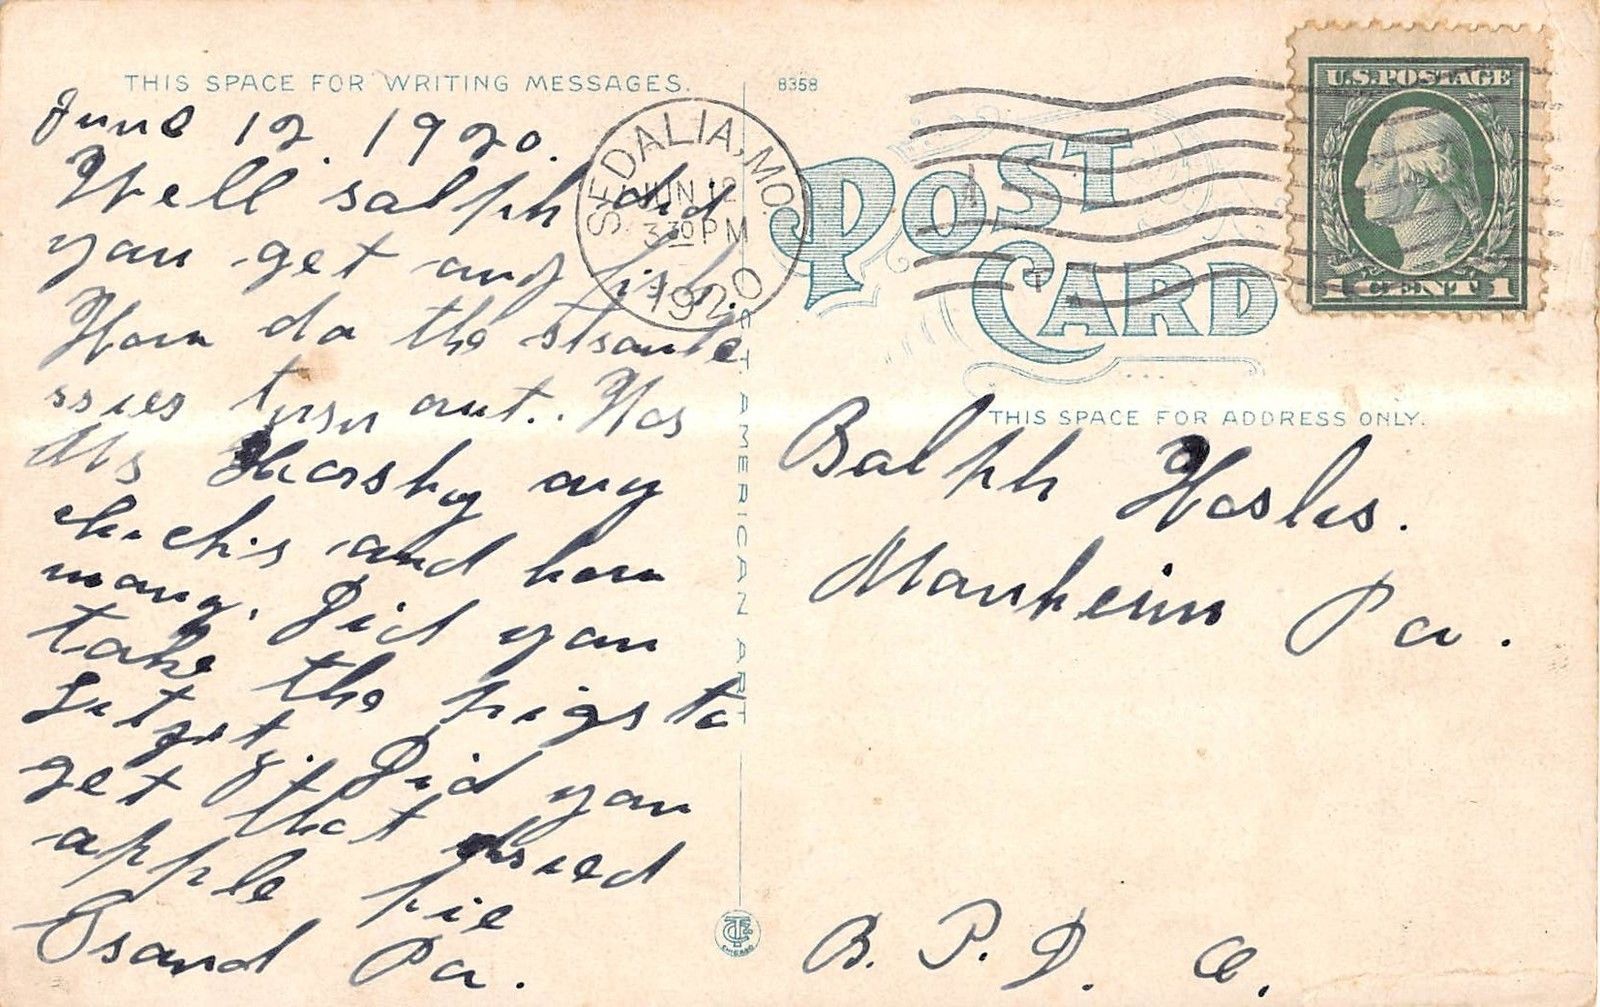 THIS SPACE FOR WRITING MESSAGES.
8358
June 12. 1920.
Well salph did
you get any fish.
How do the straube
ssies turn out.. Has
Mrs Harshy any
chicks and how
many. Did you
take the pigs to
Did you
get that dried
apple pie
Grand Pa.
SEDALIA, MO.
JUN 12
3 30 PM
1920
POST CARD
U.S. POSTAGE
1 CENT 1
THIS SPACE FOR ADDRESS ONLY.
Ralph
Manheim Pa.
C.T. AMERICAN ART
CHICAGO